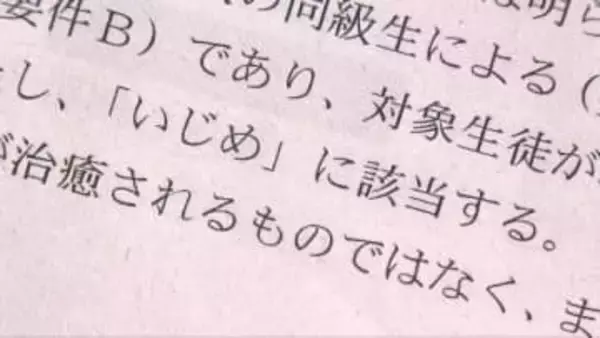 は明ら
の同級生による（
要件Ｂ）であり、対象生徒が
し、「いじめ」に該当する。
が治癒されるものではなく、ま